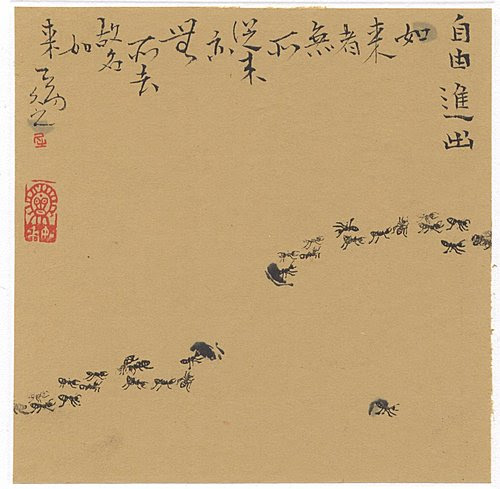 自由進出
如来者無所從来亦無所去故名如来